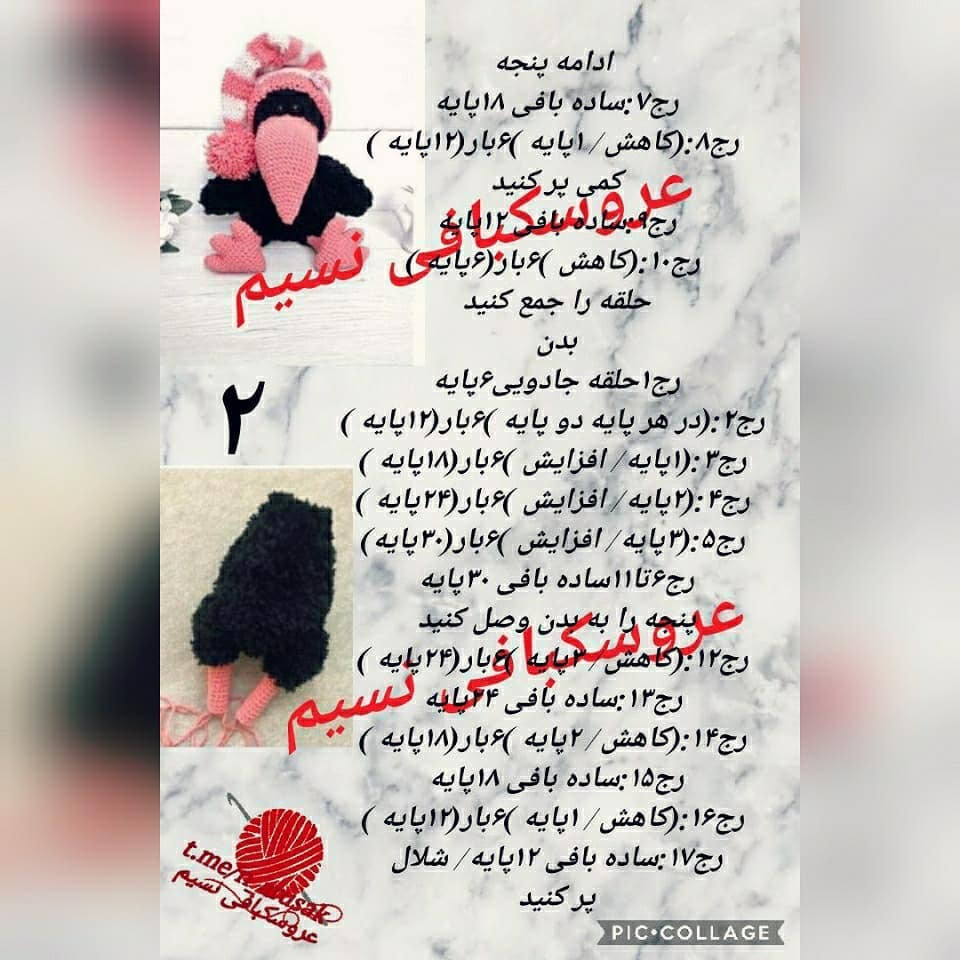 ادامه پنجه
رج۷:ساده بافی ۱۸پایه
رج۸:(کاهش/ ۱پایه )۶بار(۱۲پایه )
کمی پر کنید
رج۹:ساده بافی ۱۲پایه
رج۱۰:(کاهش )۶بار(۶پایه )
حلقه را جمع کنید
بدن
رج۱حلقه جادویی۶پایه
رج۲:(در هر پایه دو پایه )۶بار(۱۲پایه )
رج۳:(۱پایه/ افزایش )۶بار(۱۸پایه )
رج۴:(۲پایه/ افزایش )۶بار(۲۴پایه )
رج۵:(۳پایه/ افزایش )۶بار(۳۰پایه )
رج۶تا۱۱ساده بافی ۳۰پایه
پنجه را به بدن وصل کنید
رج۱۲:(کاهش/ ۳پایه )۶بار(۲۴پایه )
رج۱۳:ساده بافی ۲۴پایه
رج۱۴:(کاهش/ ۲پایه )۶بار(۱۸پایه )
رج۱۵:ساده بافی ۱۸پایه
رج۱۶:(کاهش/ ۱پایه )۶بار(۱۲پایه )
رج۱۷:ساده بافی ۱۲پایه/ شلال
پر کنید
عروسکبافی نسیم
۲
عروسکبافی نسیم
عروسکبافی نسیم
PIC•COLLAGE